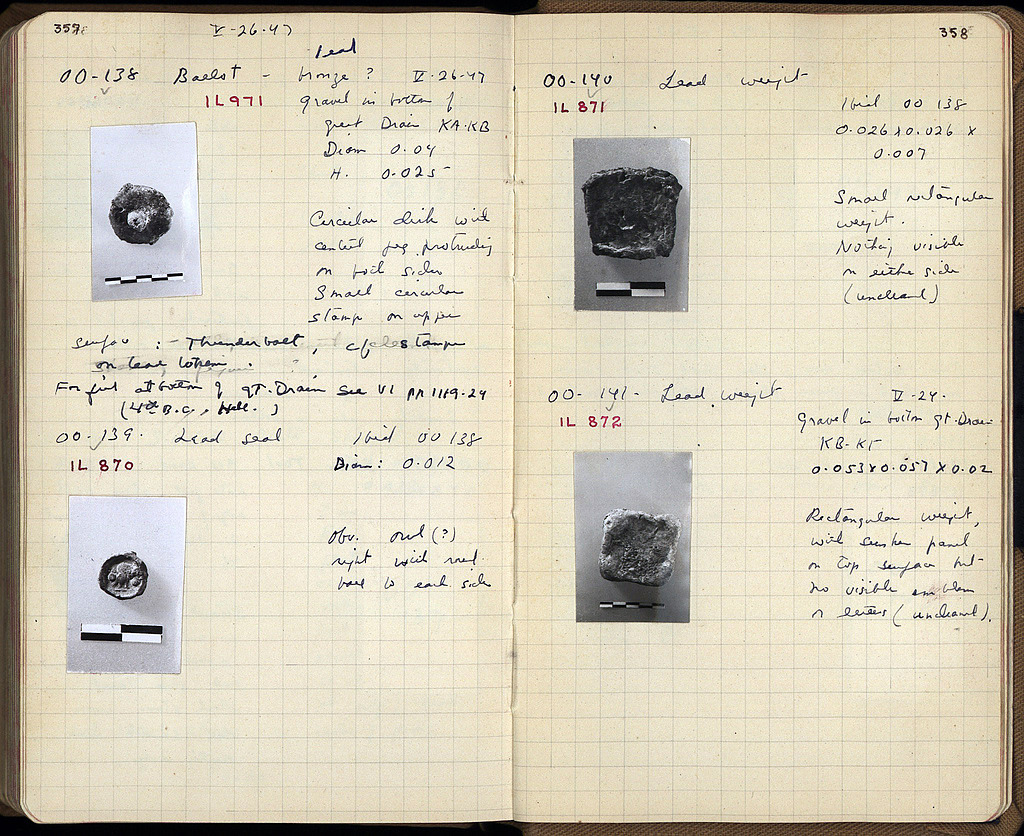 357
V-26-47
lead
OO-138 - bronze? V-26-47
IL 971
gravel in bottom of
great Drain KA-KB
Diam 0.04
H. 0.025
Circular disk with
central peg protruding
on both sides
Small circular
stamp on upper
surface :- Thunderbolt, cf. stamps
on lead
For fill at bottom of gt. Drain See VI pp 1119-24
(4th B.C., Hell.)
OO-139. Lead seal Ibid OO 138
IL 870
Diam: 0.012
Obv. owl (?)
right with
to each side
358
OO-140 Lead weight
IL 871
Ibid OO 138
0.026 x 0.026 x
0.007
Small rectangular
weight.
Nothing visible
on either side
(uncleaned)
OO-141- Lead weight V-24.
IL 872
Gravel in bottom gt. Drain
KB-KΓ
0.053 x 0.057 x 0.02
Rectangular weight,
with sunken panel
on top surface but
no visible emblem
or letters (uncleaned).